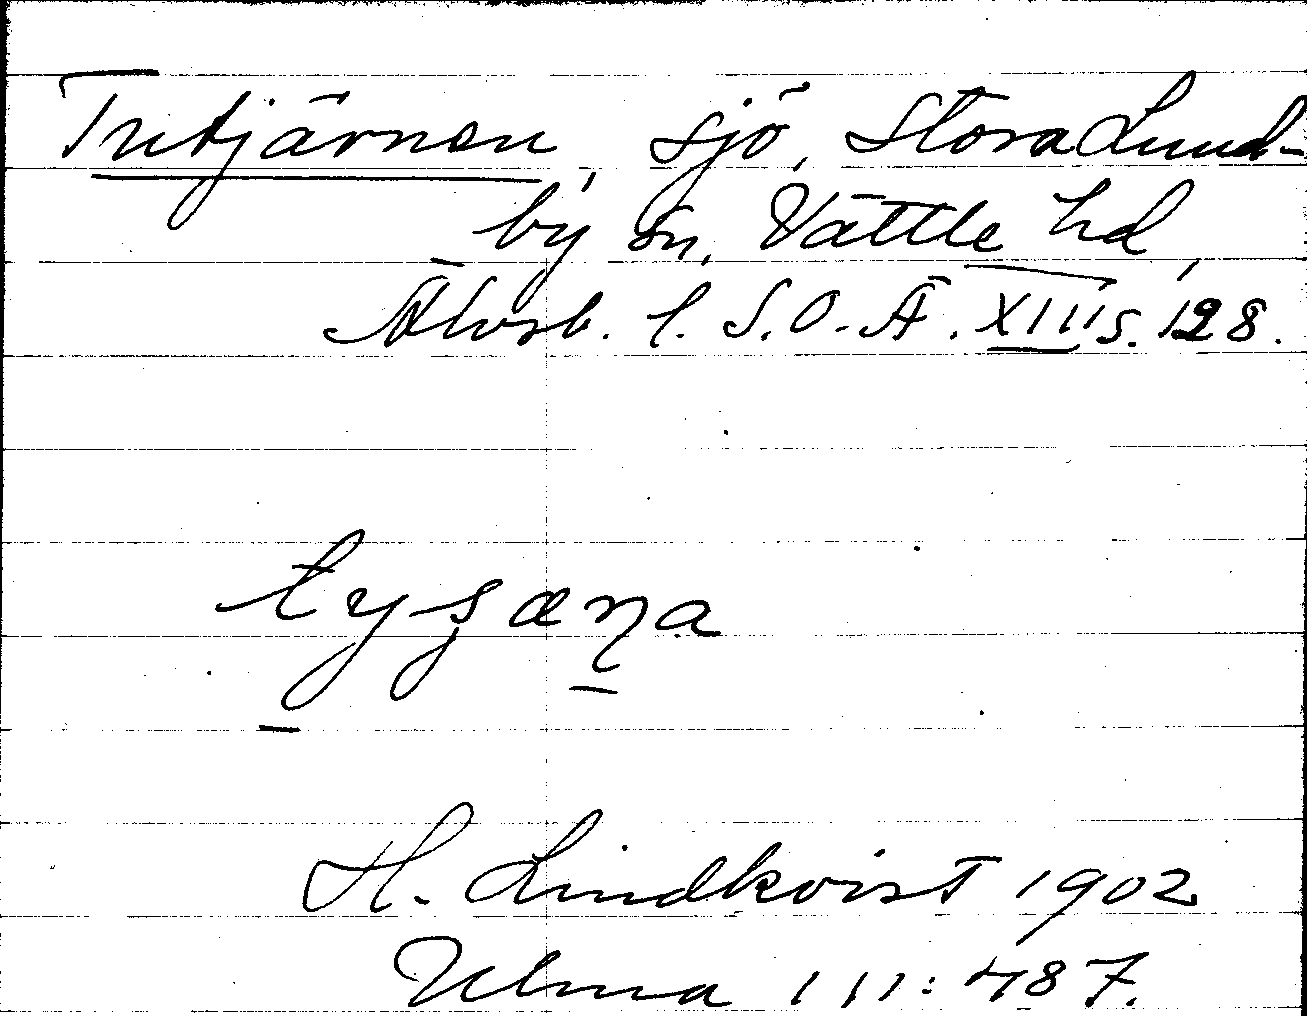 Tutjärnen, sjö, Stora Lund-
by sn, Vättle hd,
Älvsb. l. S.O.Ä. XIII s. 128.
H. Lindkvist 1902
Ulma 111: 487.